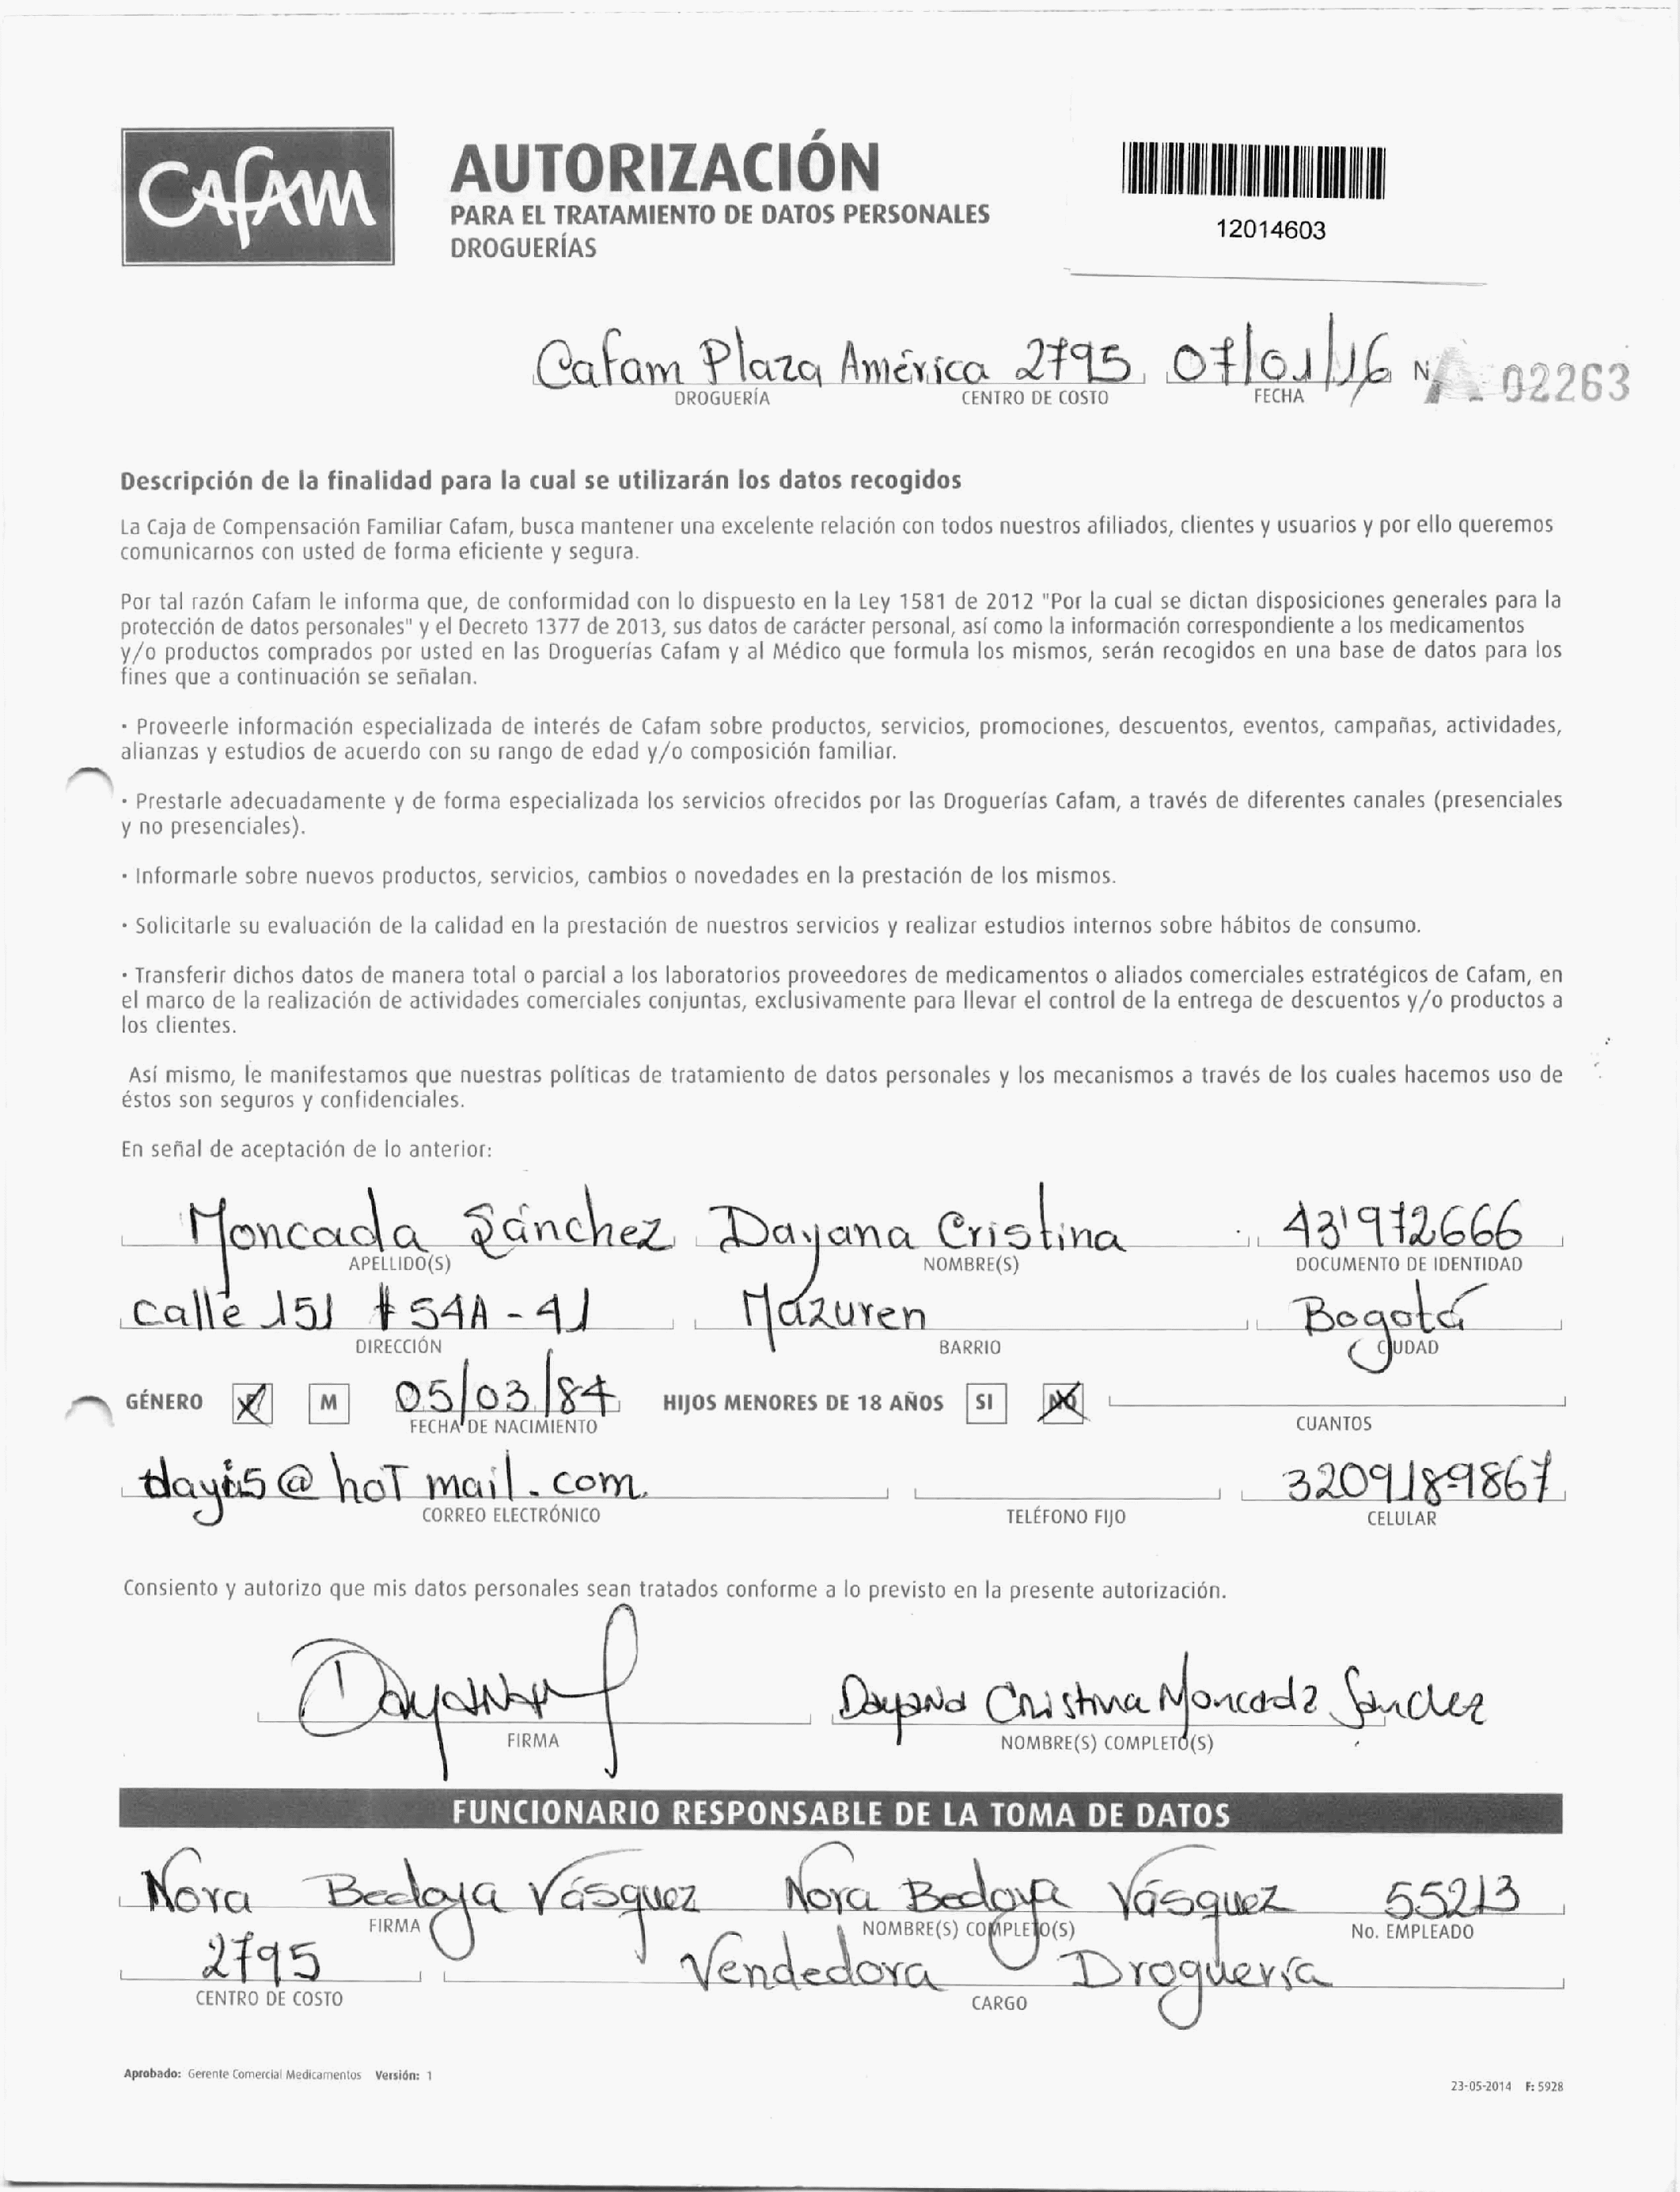 CAFAM
AUTORIZACIÓN
PARA EL TRATAMIENTO DE DATOS PERSONALES
DROGUERÍAS
12014603
Cafam Plaza América 2795 07/01/16 N 02263
DROGUERÍA CENTRO DE COSTO FECHA
Descripción de la finalidad para la cual se utilizarán los datos recogidos
La Caja de Compensación Familiar Cafam, busca mantener una excelente relación con todos nuestros afiliados, clientes y usuarios y por ello queremos
comunicarnos con usted de forma eficiente y segura.
Por tal razón Cafam le informa que, de conformidad con lo dispuesto en la Ley 1581 de 2012 "Por la cual se dictan disposiciones generales para la
protección de datos personales" y el Decreto 1377 de 2013, sus datos de carácter personal, así como la información correspondiente a los medicamentos
y/o productos comprados por usted en las Droguerías Cafam y al Médico que formula los mismos, serán recogidos en una base de datos para los
fines que a continuación se señalan.
· Proveerle información especializada de interés de Cafam sobre productos, servicios, promociones, descuentos, eventos, campañas, actividades,
alianzas y estudios de acuerdo con su rango de edad y/o composición familiar.
· Prestarle adecuadamente y de forma especializada los servicios ofrecidos por las Droguerías Cafam, a través de diferentes canales (presenciales
y no presenciales).
· Informarle sobre nuevos productos, servicios, cambios o novedades en la prestación de los mismos.
· Solicitarle su evaluación de la calidad en la prestación de nuestros servicios y realizar estudios internos sobre hábitos de consumo.
· Transferir dichos datos de manera total o parcial a los laboratorios proveedores de medicamentos o aliados comerciales estratégicos de Cafam, en
el marco de la realización de actividades comerciales conjuntas, exclusivamente para llevar el control de la entrega de descuentos y/o productos a
los clientes.
Así mismo, le manifestamos que nuestras políticas de tratamiento de datos personales y los mecanismos a través de los cuales hacemos uso de
éstos son seguros y confidenciales.
En señal de aceptación de lo anterior:
Moncada Sánchez Dayana Cristina 43'972666
APELLIDO(S) NOMBRE(S) DOCUMENTO DE IDENTIDAD
Calle 151 # 54A - 41 Mazuren Bogotá
DIRECCIÓN BARRIO CIUDAD
GÉNERO F M 05/03/84 HIJOS MENORES DE 18 AÑOS SI NO
FECHA DE NACIMIENTO CUANTOS
@hotmail.com. 3209189867
CORREO ELECTRÓNICO TELÉFONO FIJO CELULAR
Consiento y autorizo que mis datos personales sean tratados conforme a lo previsto en la presente autorización.
Dayana Cristina Moncada Sanchez
FIRMA NOMBRE(S) COMPLETO(S)
FUNCIONARIO RESPONSABLE DE LA TOMA DE DATOS
Nora Bedoya Vásquez Nora Bedoya Vásquez 55213
FIRMA NOMBRE(S) COMPLETO(S) No. EMPLEADO
2795 Vendedora Droguería
CENTRO DE COSTO CARGO
Aprobado: Gerente Comercial Medicamentos Versión: 1
23-05-2014 F: 5928